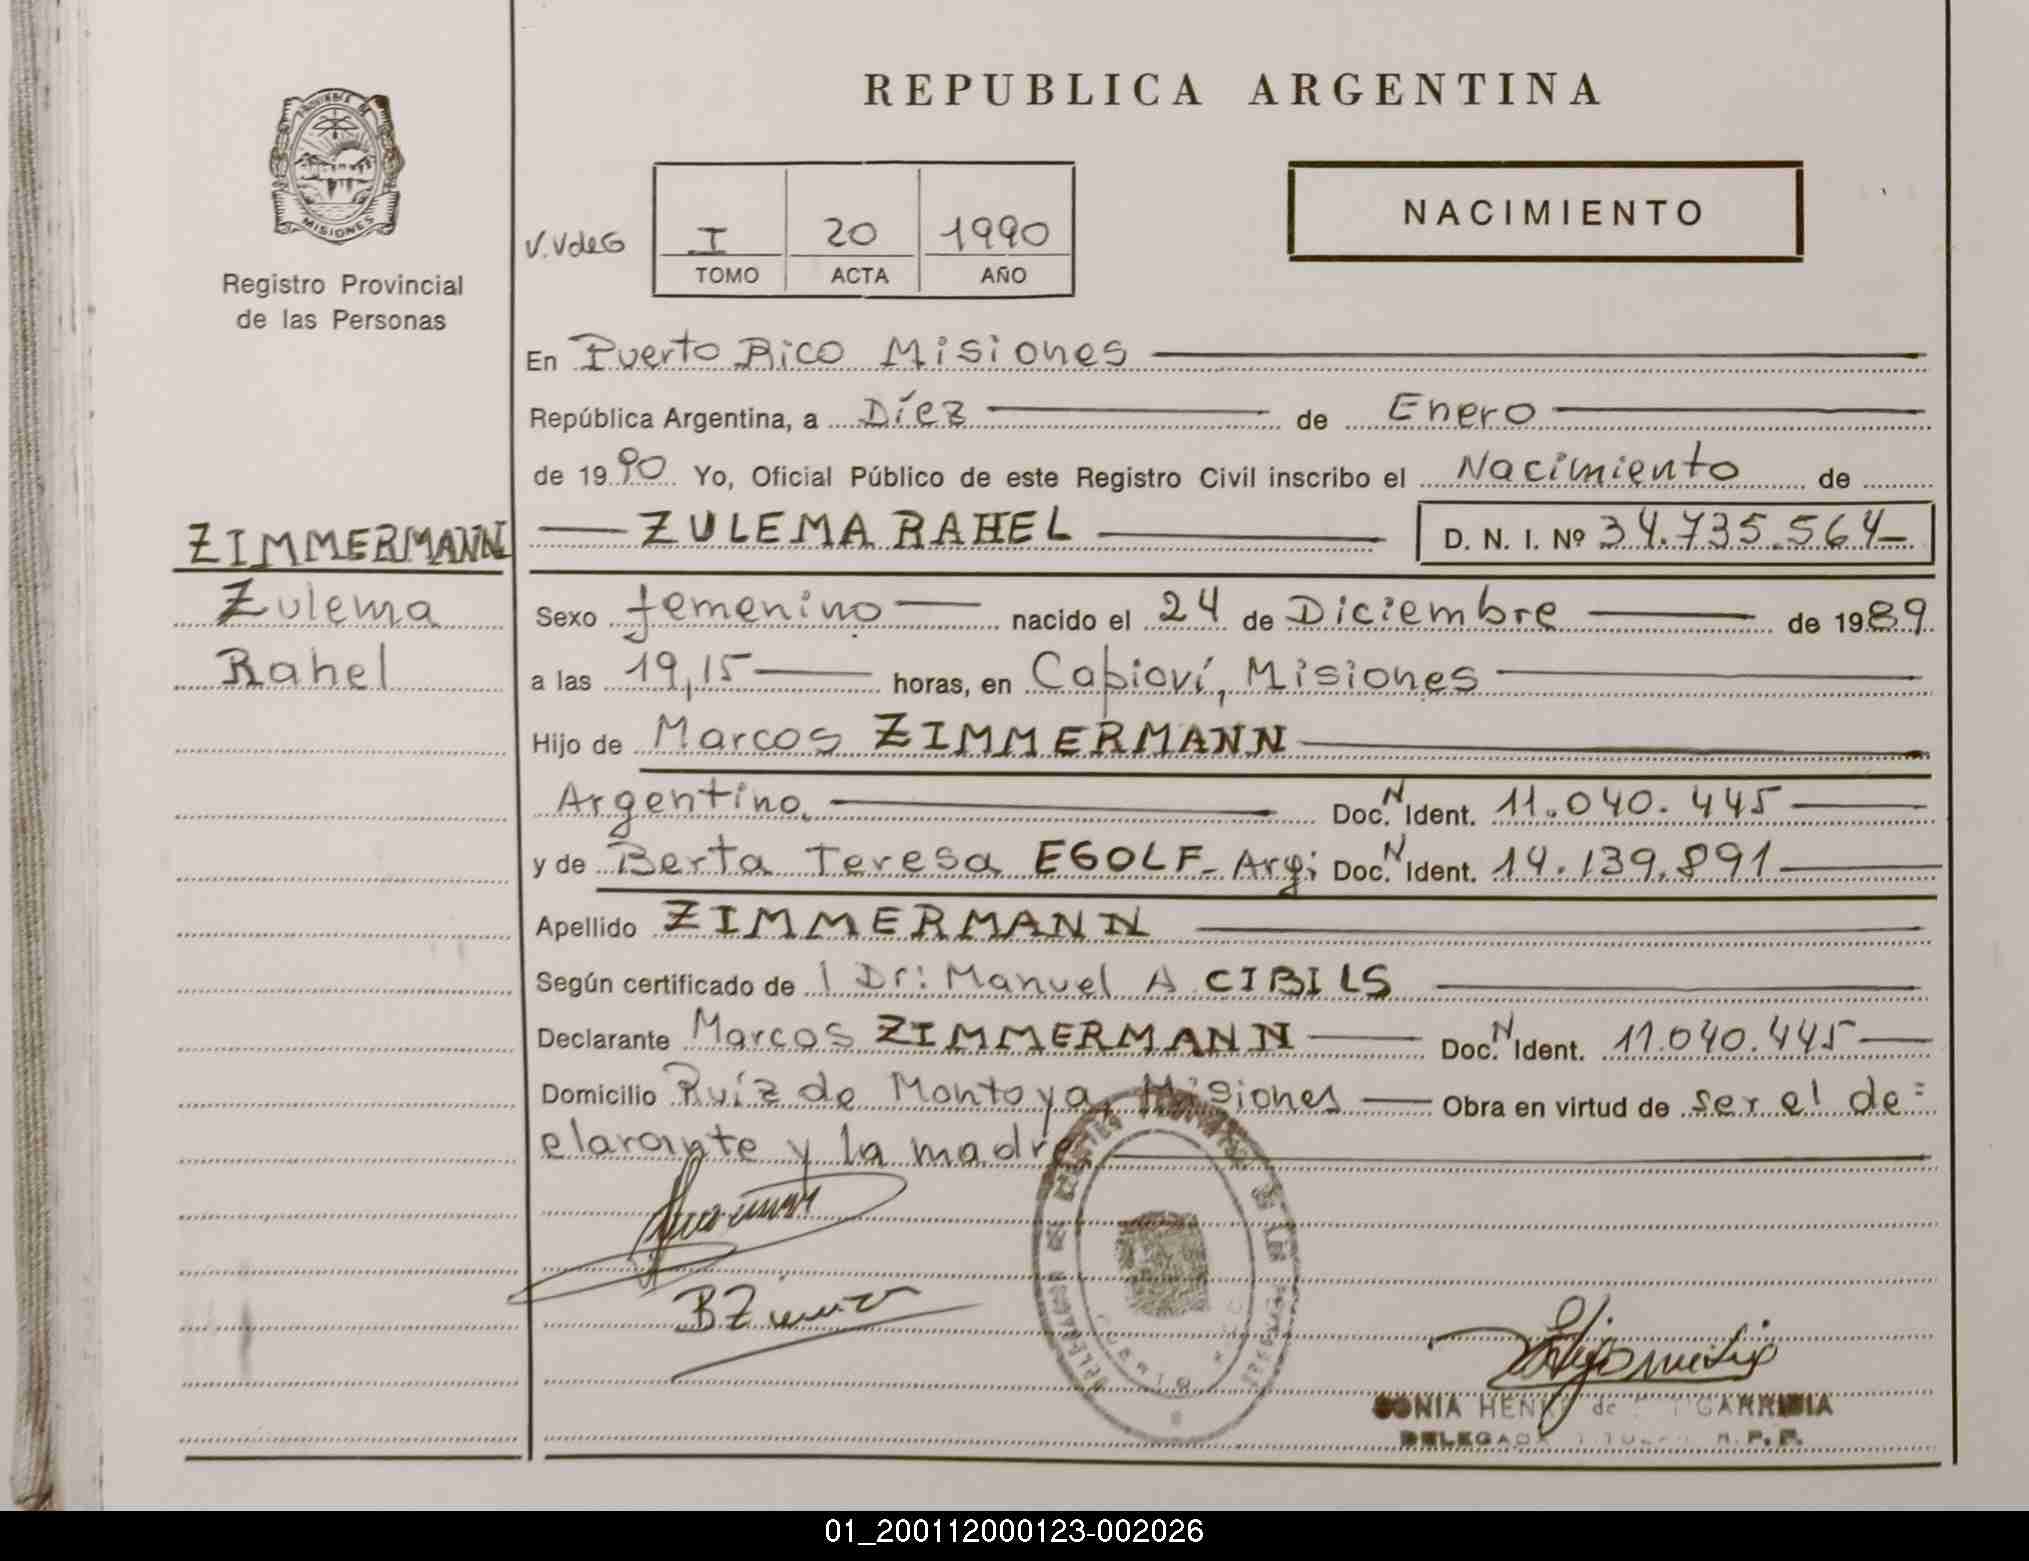 REPUBLICA ARGENTINA
PROVINCIA DE
MISIONES
Registro Provincial
de las Personas
NACIMIENTO
V.VdeG I 20 1990
TOMO ACTA AÑO
En Puerto Rico Misiones
República Argentina, a Díez de Enero
de 1990 Yo, Oficial Público de este Registro Civil inscribo el Nacimiento de
ZIMMERMANN
Zulema
Rahel
ZULEMA RAHEL D. N. I. Nº 34.735.564
Sexo femenino nacido el 24 de Diciembre de 1989
a las 19,15 horas, en Capioví, Misiones
Hijo de Marcos ZIMMERMANN
Argentino, Doc. N Ident. 11.040.445
y de Berta Teresa EGOLF- Arg; Doc. N Ident. 14.139.891
Apellido ZIMMERMANN
Según certificado de l Dr: Manuel A CIBILS
Declarante Marcos ZIMMERMANN Doc. N Ident. 11.040.445
Domicilio Ruíz de Montoya, Misiones Obra en virtud de ser el de=
clarante y la madre
SONIA de
DELEGADA R.P.P.
01_200112000123-002026